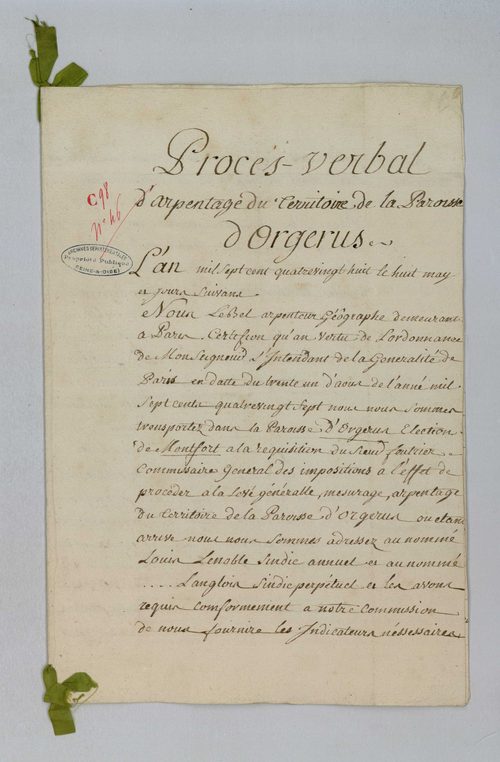 Procés-verbal
d'arpentage du territoire de la Paroisse
d'Orgerus
C 98
n° 46
ARCHIVES DÉPARTEMENTALES
Propriété Publique
SEINE-&-OISE
L'an mil Sept cent quatrevingt huit le huit may
et jours Suivans
Nous LeBel arpenteur Géographe demeurant
a Paris. Certifion qu'an vertu de Lordonnance
de Monseigneur L'Intendant de la Generalité de
Paris en datte du trente un d'aoust de l'année mil
Sept cents quatrevingt Sept nous nous Sommes
transportez dans la Paroisse d'Orgerus Election
de Montfort a la requisition du Sieur
Commissaire General des impositions à l'éffet de
procéder a la levé générale, mesurage, arpentage
du territoire de la Paroisse d'Orgerus ou etant
arrivé nous nous Sommes adressez au nominé
Louis Lenoble Sindic annuel et au nommé
..... Langlois Sindic perpétuel et les avons
requis Comformement a notre Commission
de nous fournire les Indicateurs néssessaires